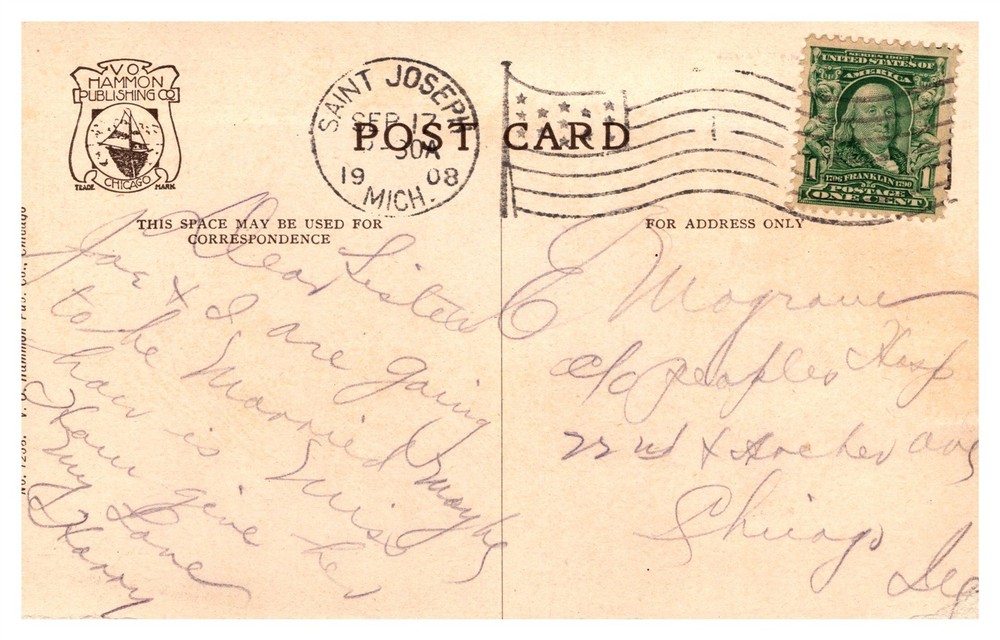 V.O.
HAMMON
PUBLISHING CO
CHICAGO
TRADE MARK
SAINT JOSEPH
SEP 17
30A
1908
MICH.
POST CARD
SERIES 1902
UNITED STATES OF
AMERICA
1 1
FRANKLIN
POSTAGE
ONE CENT
THIS SPACE MAY BE USED FOR
CORRESPONDENCE
FOR ADDRESS ONLY
V. O. Hammon Pub. Co., Chicago
Dear Sister
Joe & I are going
to be Married Maybe
how is Miss
give her
My Love
Harry
Magrane
c/o peoples Hosp
22nd & Archer ave
Chicago